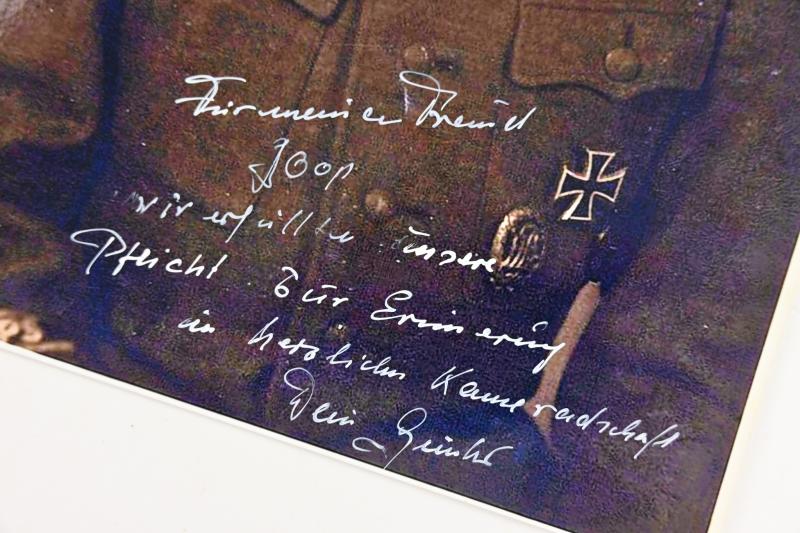 Für meinen Freund
Joop
wir erfüllten unsere
Pflicht. Zur Erinnerung
in herzlicher Kameradschaft
Dein Günter